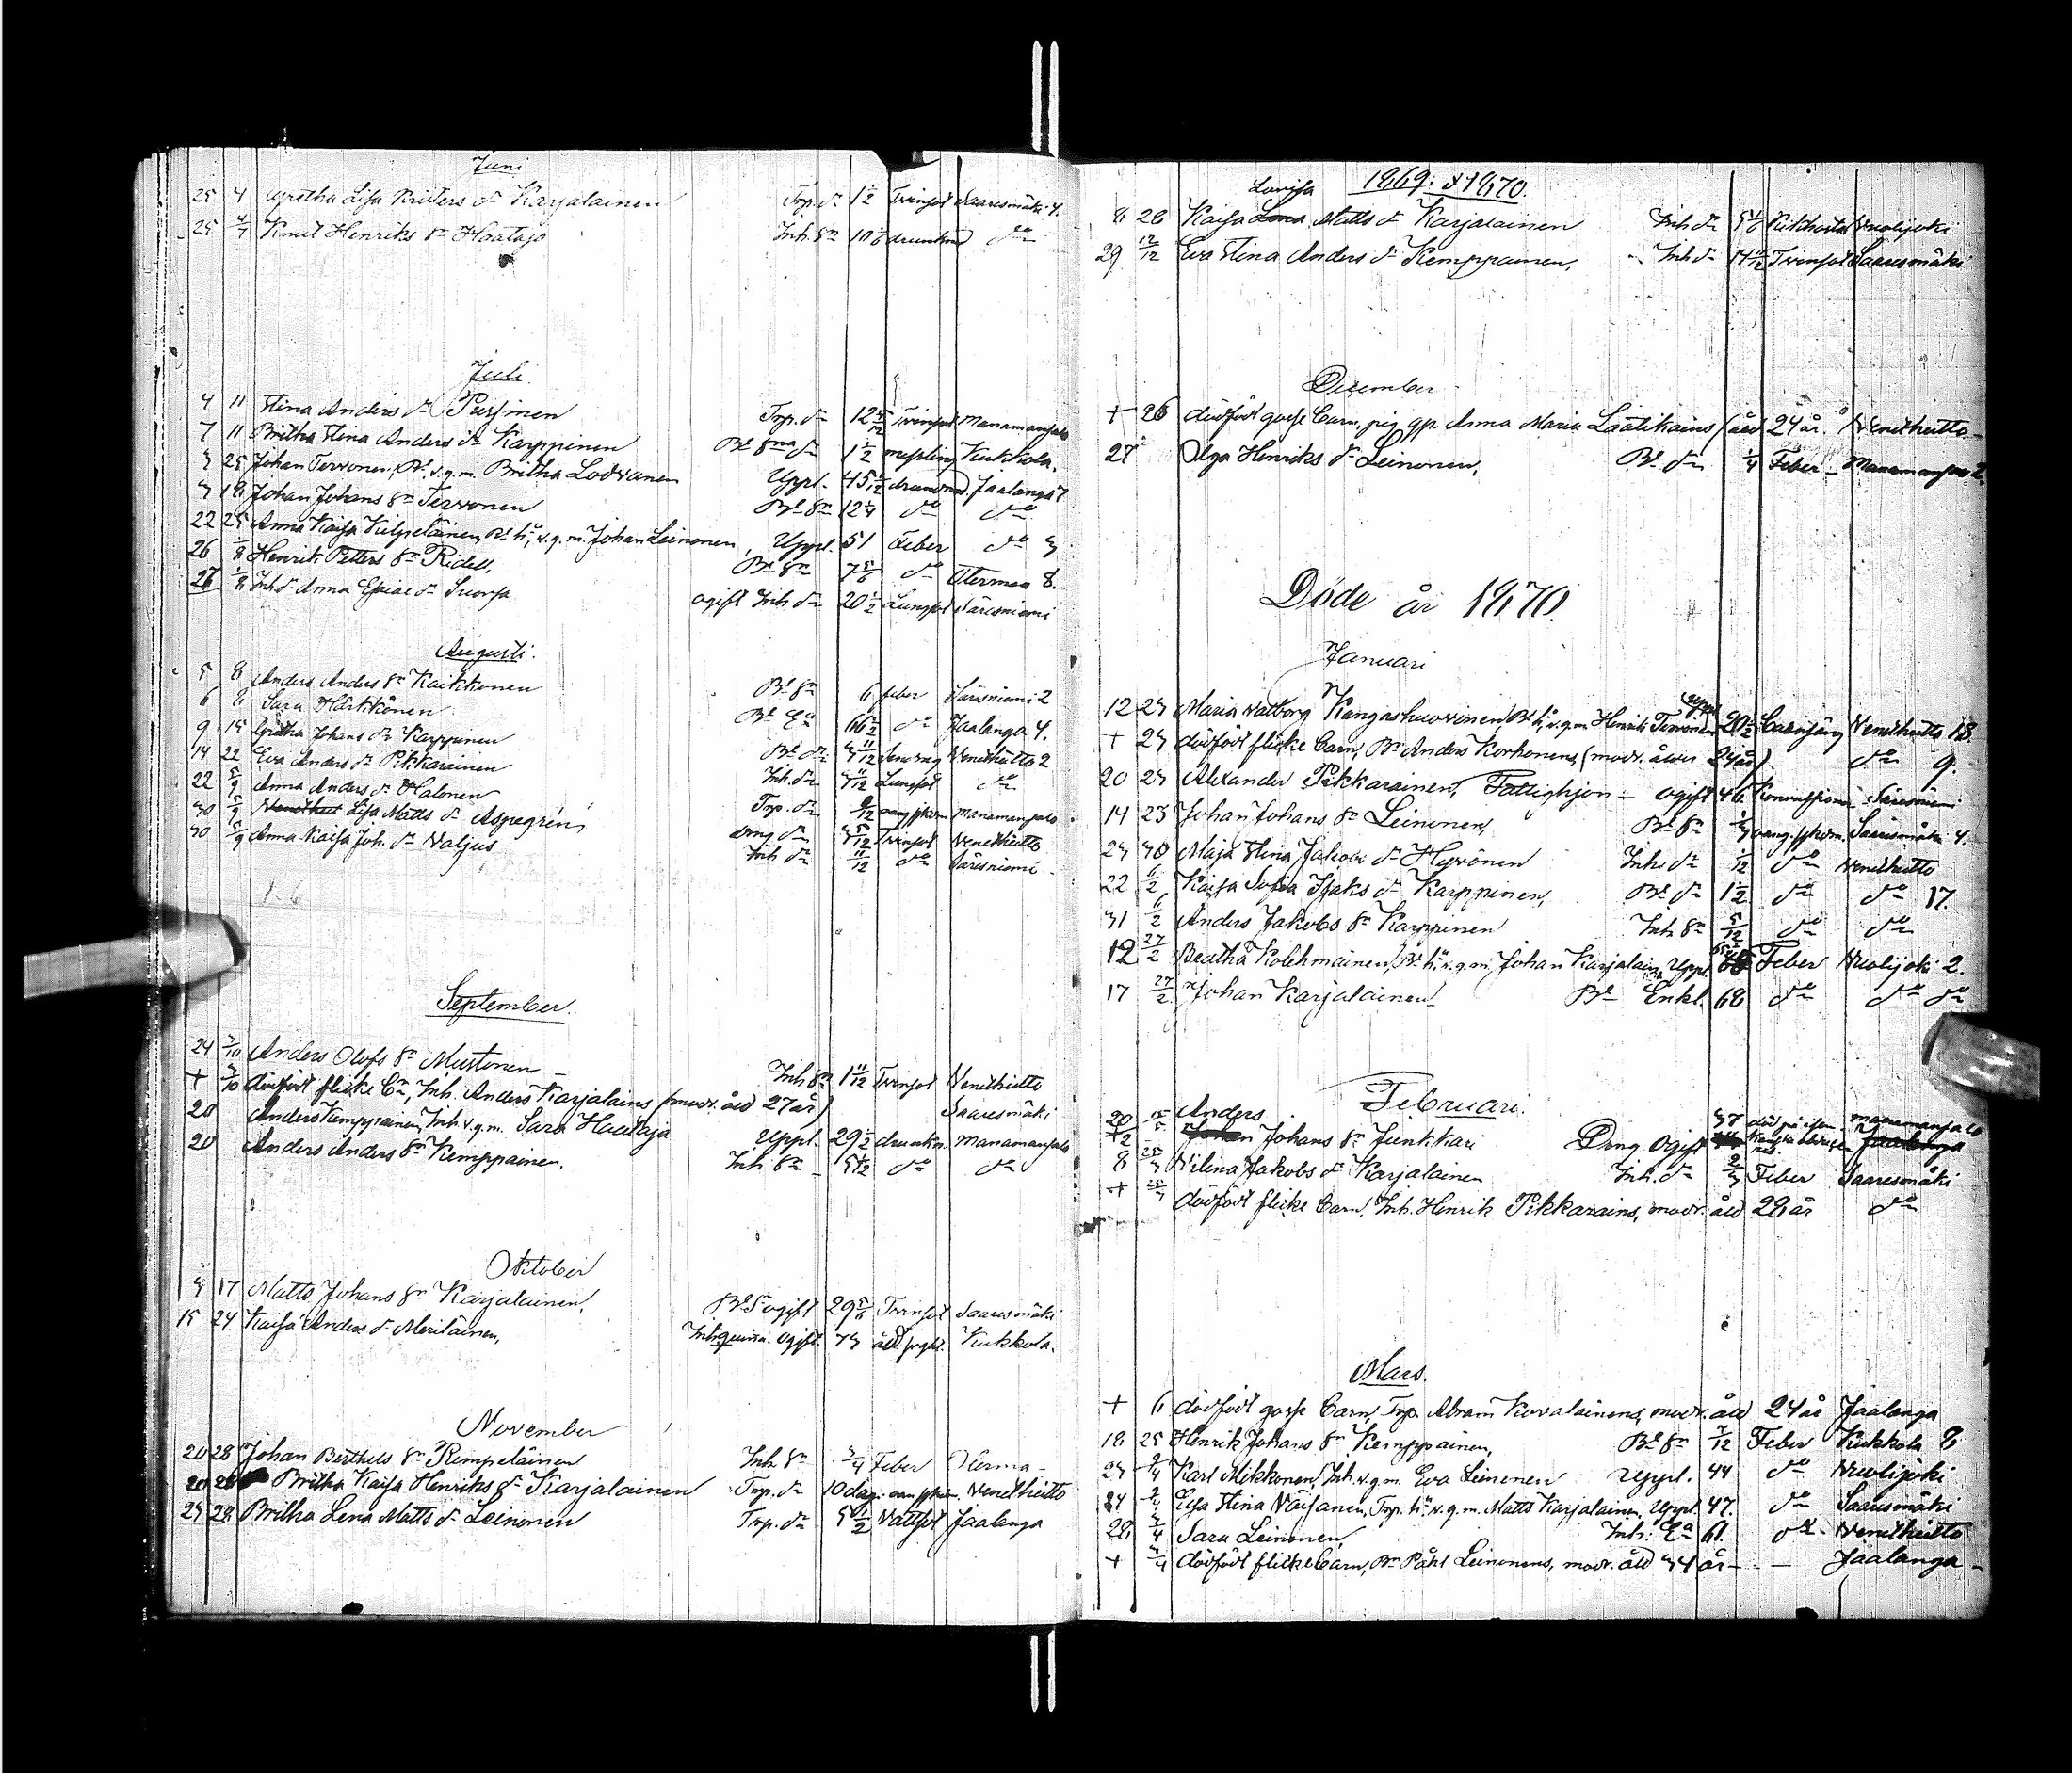 Juni
25 4 Gretha Lisa Kristers dr Karjalainen Torp. dr 1 1/2 Tvinsot Saaresmäki 4.
25 4/7 Knut Henriks sn Haataja Inh. sn 10 5/6 drunknad do
Juli.
4 11 Stina Anders dr Pursinen Torp. dr 12 5/12 Tvinsot Manamansalo
7 11 Britha Stina Anders dr Karppinen Bd sna dr 1 1/2 messling Kukkola.
3 25 Johan Tervonen, Bd. v.g.m. Britha Lovvanen Uppl. 45 drunknad Jaalanga 7
3 18 Johan Johans sn Tervonen Bd sn 12 1/4 do do
22 25 Anna Kaisa Kilpeläinen, Bd. hu, v.g.m. Johan Leinonen, Uppl. 51 Feber do 3
26 1/8 Henrik Petters sn Ridell. Bd sn 7 5/6 do Oterma 8.
26 1/8 Inh. dr Anna Esaiae dr Suorsa ogift Inh dr 20 1/2 Lungsot Säresniemi
Augusti.
5 8 Anders Anders sn Kaikkonen Bd sn 6 feber Säresniemi 2
6 8 Sara Härkkönen Bd Ea 66 1/2 do Jaalanga 4.
9 15 Gretha Johans dr Karppinen Bd. dr 3 11/12 Venetheitto 2
14 22 Eva Anders dr Pikkarainen Inh. dr 3 11/12 Lungsot do
22 5/9 Anna Anders dr Halonen Torp. dr 9/12 Manamansalo
30 5/9 Lisa Matts dr Aspegrén Drng dr 3 5/12 Tvinsot Venetheitto
30 5/9 Anna Kaisa Joh. dr Valjus Inh dr 11/12 do Säresniemi
September.
24 3/10 Anders Olofs sn Mustonen Inh sn 1 11/12 Tvinsot Venetheitto
+ 3/10 dödfödt flicke bn, Inh. Anders Karjalains (modr. åld 27 år) Saaresmäki
20 Anders Kemppainen, Inh. v.g.m. Sara Haataja Uppl. 29 1/2 drunkn. Manamansalo
20 Anders Anders sn Kemppainen. Inh. sn do do
Oktober
3 17 Matts Johans sn Karjalainen, Bd. sn ogift 29 5/6 Tvinsot Saaresmäki
15 24 Kaisa Anders dr Meriläinen, Inh. quinna. ogift. 73 Kukkola.
November
20 28 Johan Berthils sn Rempeläinen Inh. sn 3/4 Feber Oterma
20 28 Britha Kaisa Henriks dr Karjalainen Torp. dr 10 dag. Venetheitto
23 28 Britha Lena Matts dr Leinonen Torp. dr Vattsot Jaalanga
1869. & 1870.
Lovisa
8 26 Kaisa Lena Matts dr Karjalainen Inh dr 5 1/6 Kikhosta Vuolijoki
29 12/12 Eva Stina Anders dr Kemppainen, Inh dr 14 11/12 Tvinsot Saaresmäki
December
+ 26 dödfödt gosse barn, pig. gp. Anna Maria Laatikains (åld 24 år. Venetheitto
27 Olga Henriks dr Leinonen, Bd dr 1/4 Feber Manamansalo 2.
Döde år 1870.
Januari
12 23 Maria Valborg Kangashuovinen, Bd. hu, v.g.m. Henrik Tervonen Uppl 20 1/2 barnsäng Venetheitto 18.
+ 23 dödfödt flicke barn, Bd Anders Korhonens, (modr. ålder 24 år) do 9.
20 23 Alexander Pikkarainen, Fattighjon ogift 46. Säresniemi
14 23 Johan Johans sn Leinonen, Bd sn Saaresmäki 4.
23 30 Maja Stina Jakobs dr Hyvönen Inh. dr 1/12 do Venetheitto
22 6/2 Kaisa Sofia Isaks dr Karppinen, Bd dr 1 1/2 do do 17.
31 6/2 Anders Jakobs sn Karppinen Inh. sn 5/12 do do
12 27/2 Beatha Kolehmainen, Bd. hu, v.g.m. Johan Karjalain, Uppl. Feber Vuolijoki 2.
17 27/2 Johan Karjalainen Bd Enkl. 68 do do do
Februari.
Anders
Johan Johans sn Junkkari Drng ogift 37 Manamansalo
8 Vilina Jakobs dr Karjalainen Inh. dr 2/3 Feber Saaresmäki
+ dödfödt flicke barn, Inh. Henrik Pikkarains, modr. åld 29 år do
Mars.
+ 6 dödfödt gosse barn, Torp. Abram Kovalainens, modr. åld 24 år Jaalanga
18 25 Henrik Johans sn Kemppainen, Bd sn Feber Kukkola 8
23 2/4 Karl Mikkonen, Inh. v.g.m. Eva Leinonen Uppl. 44 do Vuolijoki
24 2/4 Eva Stina Väisänen, Torp. hu. v.g.m. Matts Karjalainen, Uppl 47. do Saaresmäki
28 3/4 Sara Leinonen, Inh. Ea 61. do Venetheitto
+ 3/4 dödfödt flicke barn, Bd Påhl Leinonens, modr. åld 34 år Jaalanga